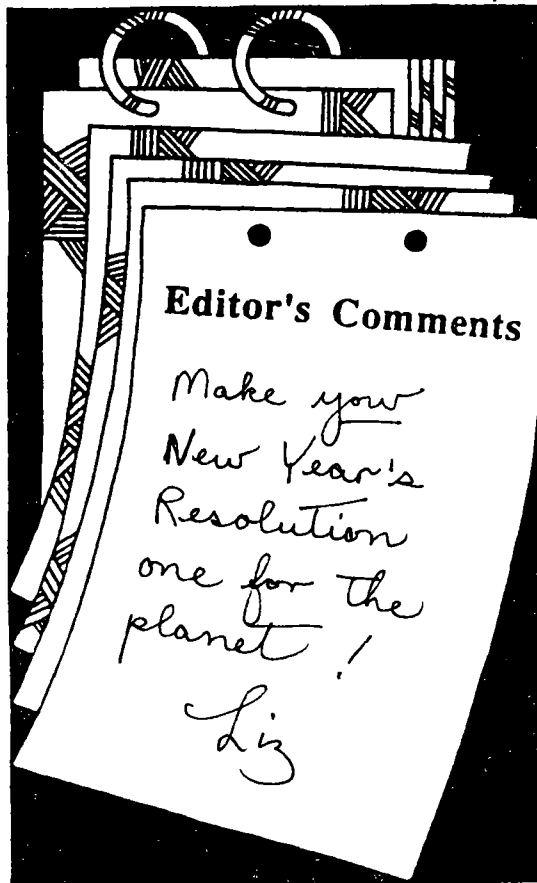 Editor's Comments
Make your
New Year's
Resolution
one for the
planet!
Liz